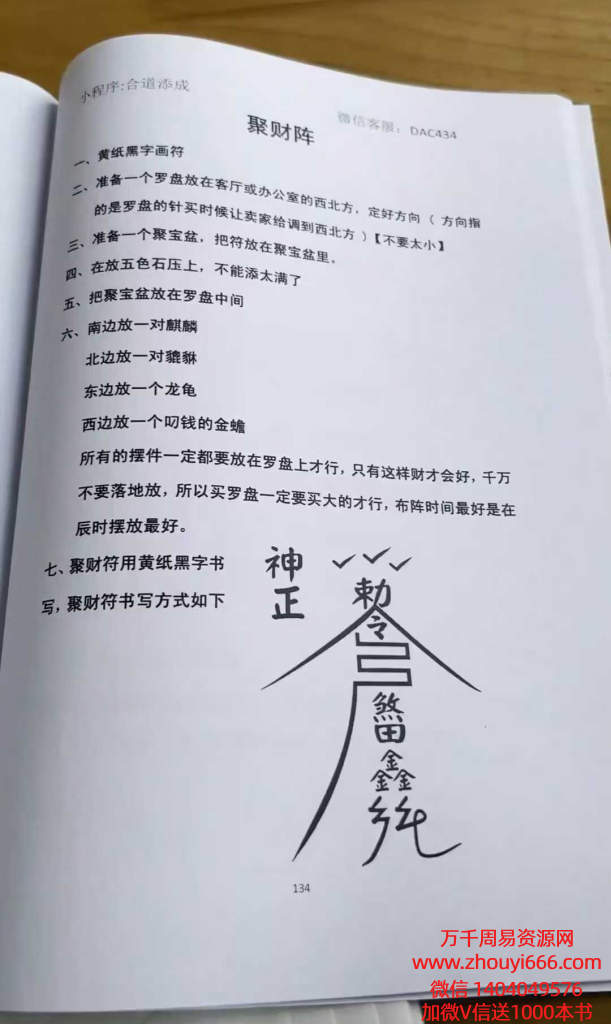 小程序:合道添成
微信客服：DAC434
聚财阵
一、黄纸黑字画符
二、准备一个罗盘放在客厅或办公室的西北方，定好方向（ 方向指
的是罗盘的针买时候让卖家给调到西北方 ）【不要太小】
三、准备一个聚宝盆，把符放在聚宝盆里。
四、在放五色石压上，不能添太满了
五、把聚宝盆放在罗盘中间
六、南边放一对麒麟
北边放一对貔貅
东边放一个龙龟
西边放一个叼钱的金蟾
所有的摆件一定都要放在罗盘上才行，只有这样财才会好，千万
不要落地放，所以买罗盘一定要买大的才行，布阵时间最好是在
辰时摆放最好。
七、聚财符用黄纸黑字书
写，聚财符书写方式如下
神
正
勅
令
煞
田
鑫
鑫鑫
134
万千周易资源网
www.zhouyi666.com
微信 1404049576
加微V信送1000本书